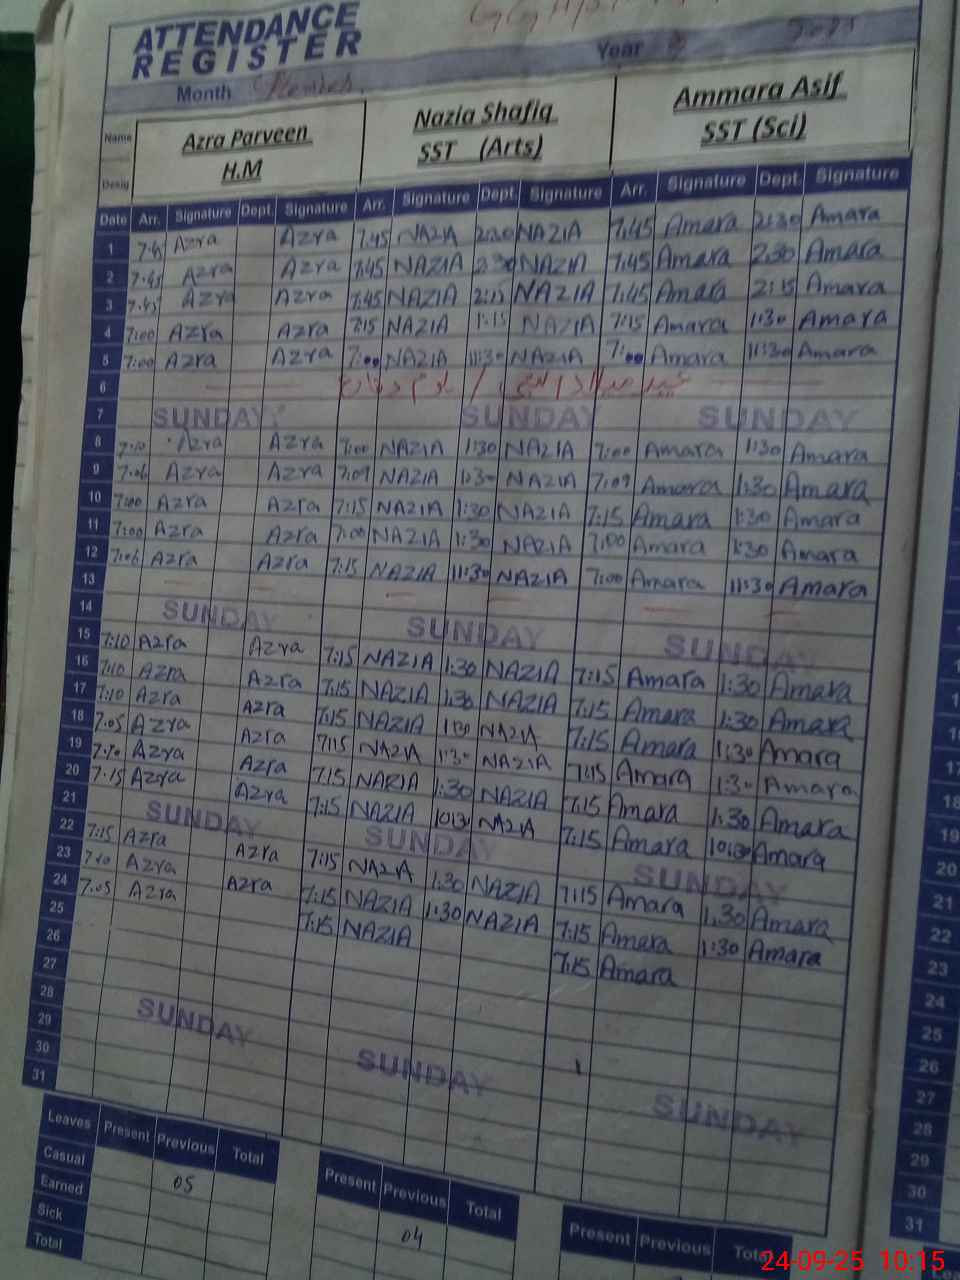 ATTENDANCE
REGISTER
Year
Month
Name Azra Parveen Nazia Shafiq Ammara Asif
Desig H.M SST (Arts) SST (Sci)
Date Arr. Signature Dept. Signature Arr. Signature Dept. Signature Arr. Signature Dept. Signature
1 Azra Azra 7:45 NAZIA NAZIA 7:45 Amara 2:30 Amara
2 7:45 Azra Azra 7:45 NAZIA 2:30 NAZIA 7:45 Amara 2:30 Amara
3 7:45 Azra Azra 7:45 NAZIA 2:15 NAZIA 7:45 Amara 2:15 Amara
4 7:00 Azra Azra 7:15 NAZIA 1:15 NAZIA 7:15 Amara 1:30 Amara
5 7:00 Azra Azra 7:00 NAZIA 11:30 NAZIA 7:00 Amara 11:30 Amara
6
7 SUNDAY SUNDAY SUNDAY
8 7:10 Azra Azra 7:00 NAZIA 1:30 NAZIA 7:00 Amara 1:30 Amara
9 7:06 Azra Azra 7:09 NAZIA 1:30 NAZIA 7:09 Amara 1:30 Amara
10 7:00 Azra Azra 7:15 NAZIA 1:30 NAZIA 7:15 Amara 1:30 Amara
11 7:00 Azra Azra 7:00 NAZIA 1:30 NAZIA 7:00 Amara 1:30 Amara
12 7:06 Azra Azra 7:15 NAZIA 11:30 NAZIA 7:00 Amara 11:30 Amara
13
14 SUNDAY SUNDAY SUNDAY
15 7:10 Azra Azra 7:15 NAZIA 1:30 NAZIA 7:15 Amara 1:30 Amara
16 7:10 Azra Azra 7:15 NAZIA 1:30 NAZIA 7:15 Amara 1:30 Amara
17 7:10 Azra Azra 7:15 NAZIA 1:30 NAZIA 7:15 Amara 1:30 Amara
18 7:05 Azra Azra 7:15 NAZIA 1:30 NAZIA 7:15 Amara 1:30 Amara
19 7:10 Azra Azra 7:15 NAZIA 1:30 NAZIA 7:15 Amara 1:30 Amara
20 7:15 Azra Azra 7:15 NAZIA 10:30 NAZIA 7:15 Amara 10:30 Amara
21 SUNDAY SUNDAY SUNDAY
22 7:15 Azra Azra 7:15 NAZIA 1:30 NAZIA 7:15 Amara 1:30 Amara
23 7:10 Azra Azra 7:15 NAZIA 1:30 NAZIA 7:15 Amara 1:30 Amara
24 7:05 Azra 7:15 NAZIA 7:15 Amara
25
26
27
28 SUNDAY SUNDAY SUNDAY
29
30
31
Leaves Present Previous Total Present Previous Total Present Previous Total
Casual 05 04
Earned
Sick
Total
17
18
19
20
21
22
23
24
25
26
27
28
29
30
31
24-09-25 10:15